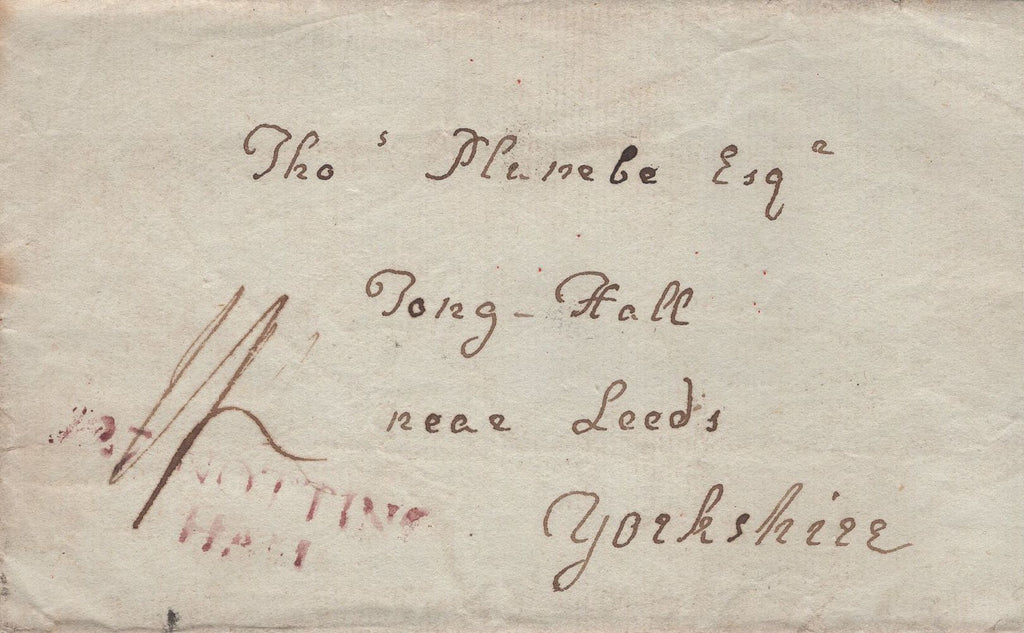 Tho s Plumbe Esq r
Tong - Hall
near Leeds
Yorkshire
NOTTING